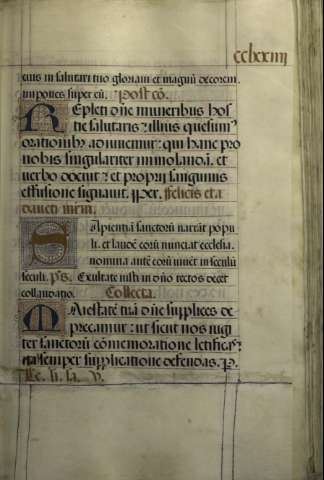 cclxxiiij
eius in salutari tuo gloriam et magnū decorem
impones super eū. Post cō.
Repleti dn̄e muneribus hos
tie salutaris: illius quesum'
orationibꝫ adiuuemur: qui hanc pro
nobis singulariter immolandā. et
verbo docuit et proprij sanguinis
effusione signauit. Qper. felicis et a
daucti mr̄m.
Sapientiā sanctorū narrāt popu
li. et laudē eorū nunciat ecclesia.
nomina autē eorū viuēt in seculū
seculi. ps. Exultate iusti in dn̄o rectos decet
collaudatio. Collecta.
Maiestatē tuā dn̄e supplices de
precamur: ut sicut nos iugi
ter sanctorū cōmemoratione letificas:
ita semper supplicatione defendas. P.